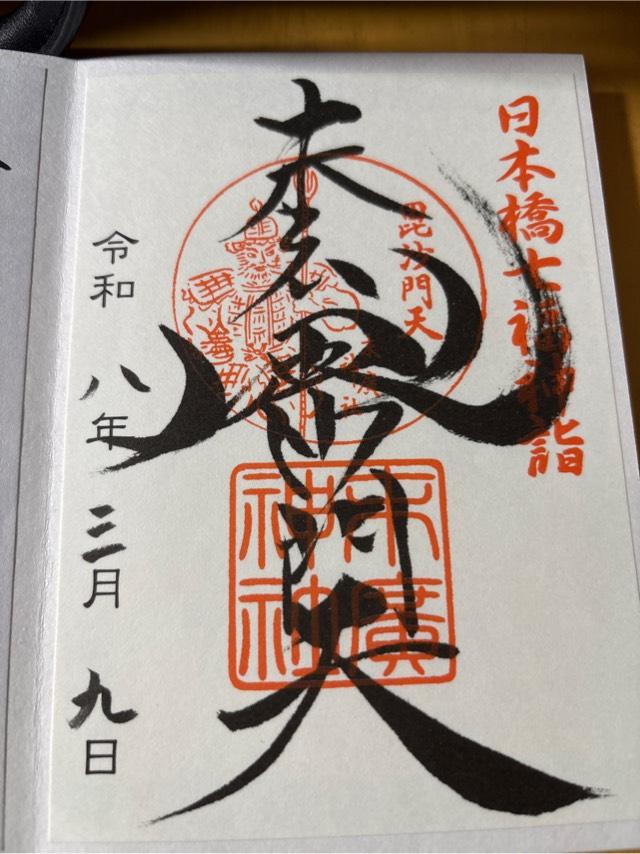 日本橋七福神詣
毘沙門天
毘沙門天
末廣
神社
令和 八年 三月 九日